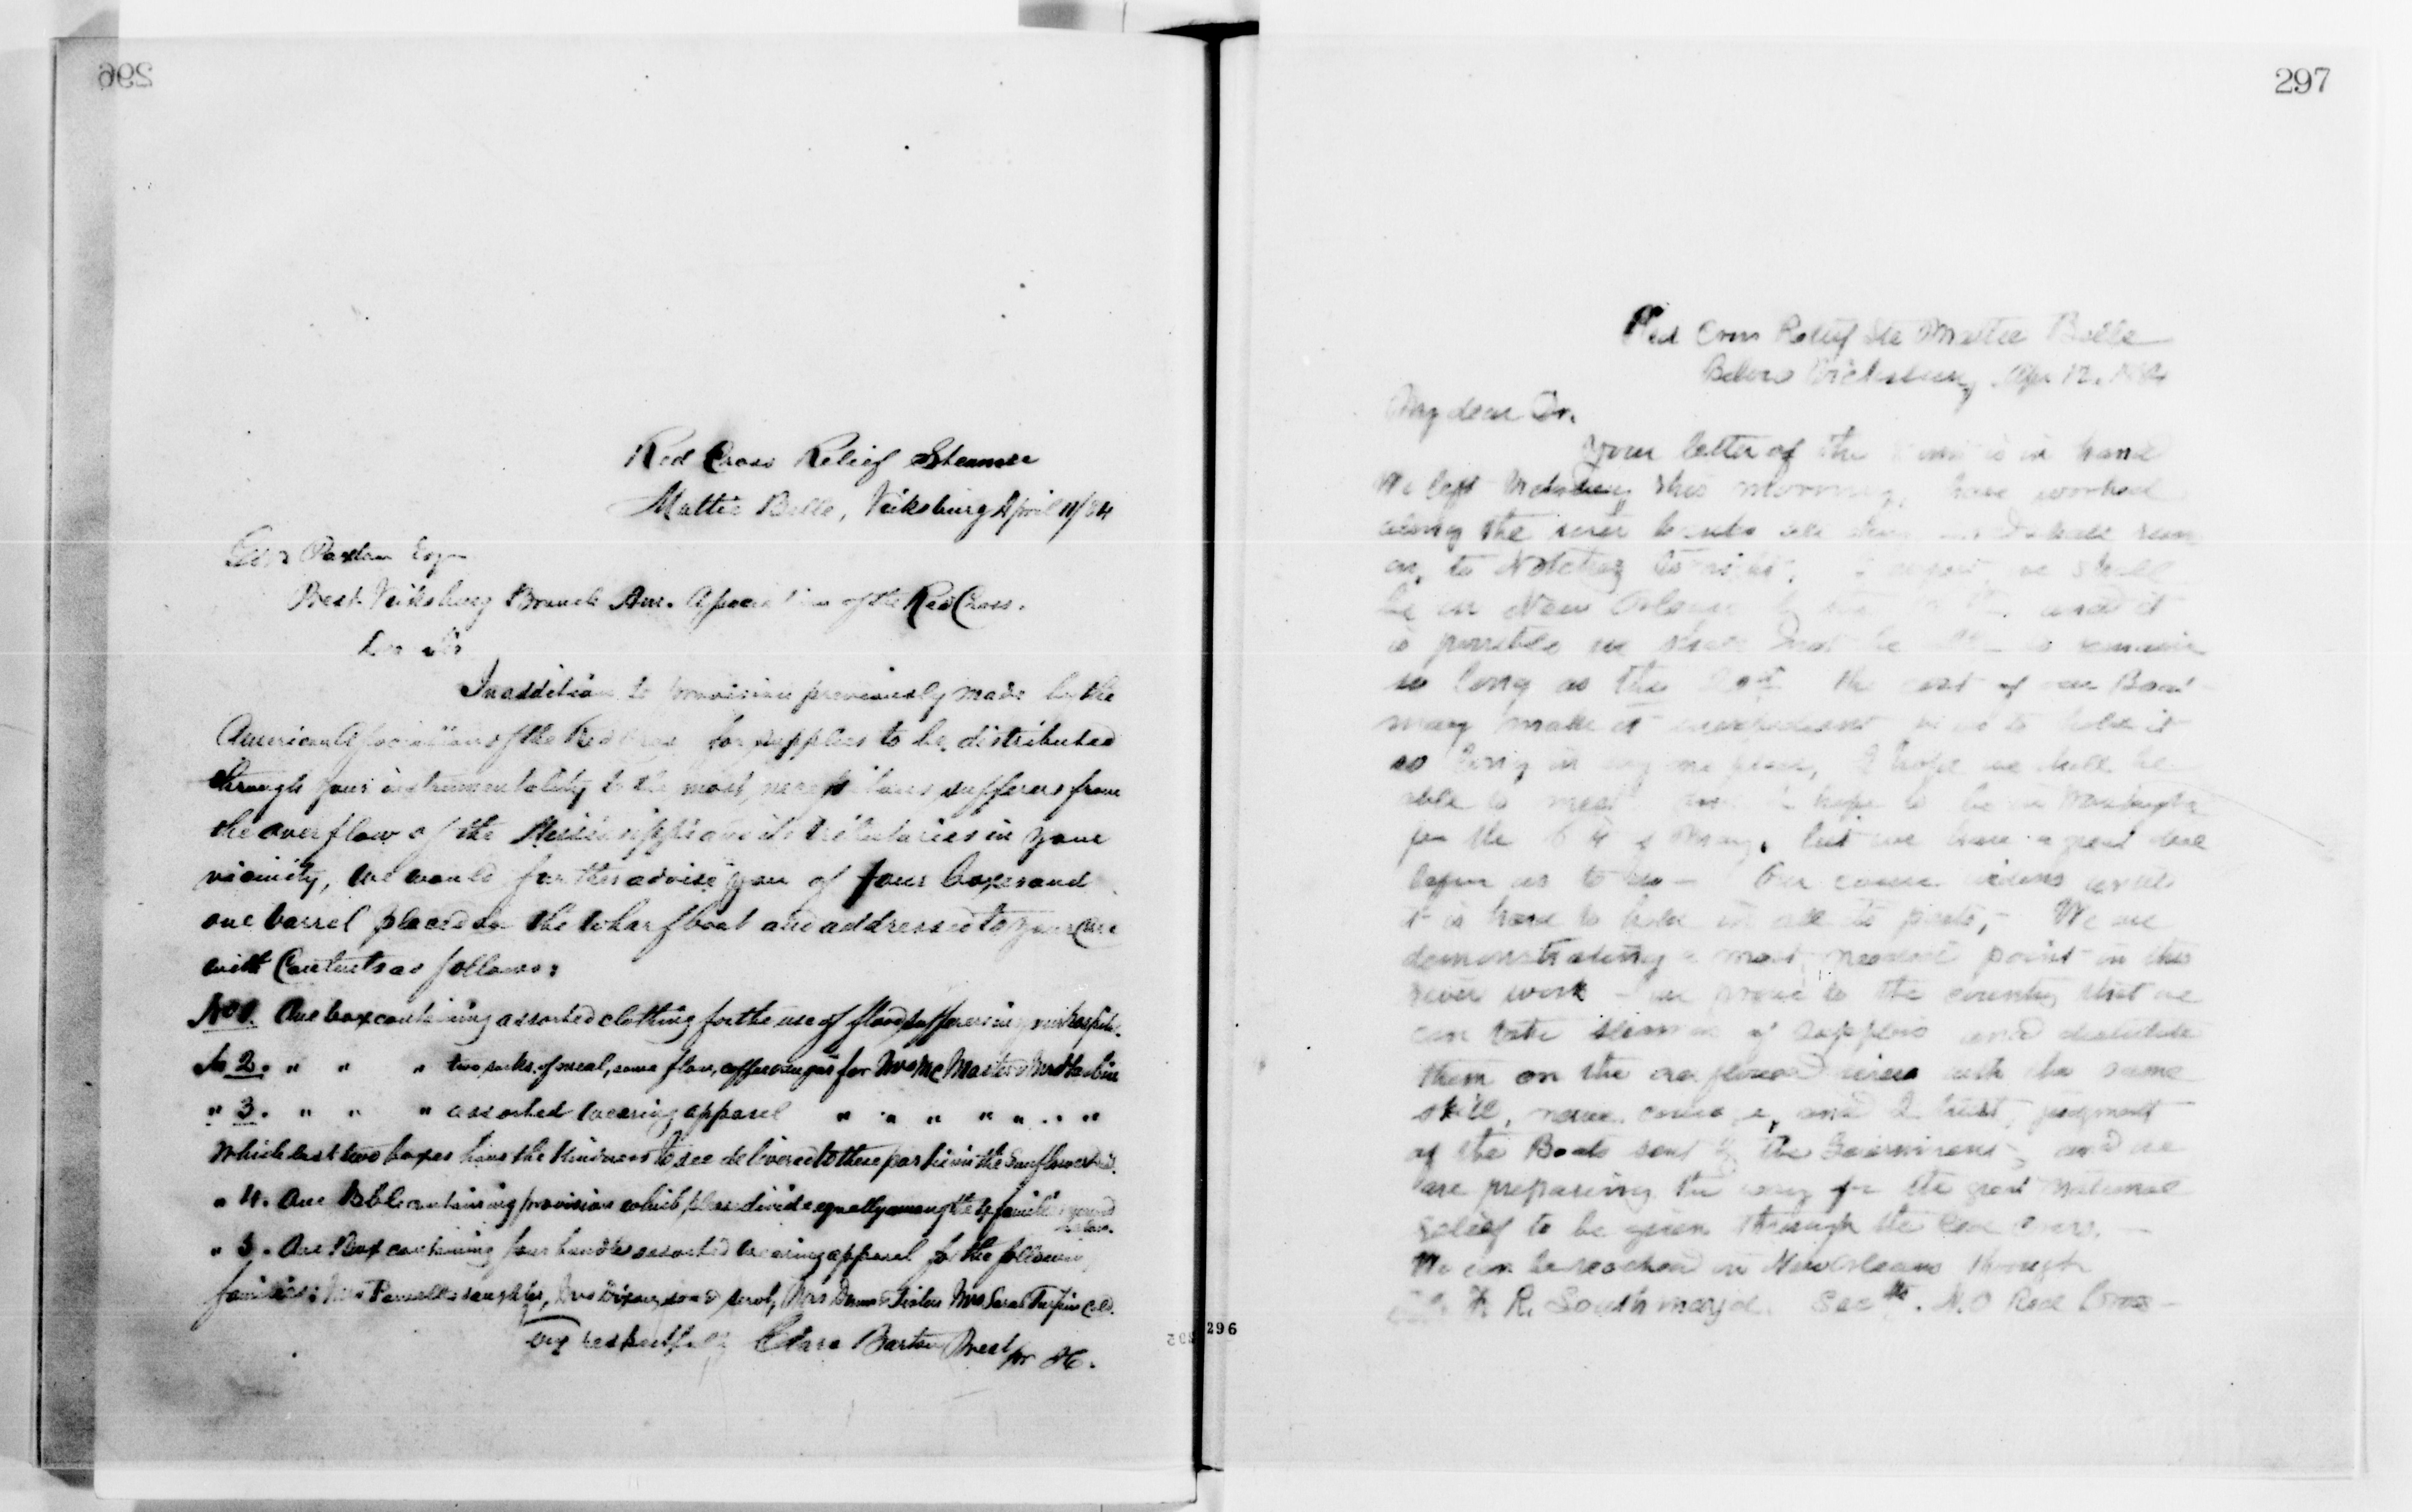 296
Red Cross Relief Steamer
Mattie Belle, Vicksburg April 11/84
Esq
Prest. Vicksburg Branch Am. Association of the Red Cross.
Dear Sir
In addition to provisions previously made by the
American Association of the Red Cross for supplies to be distributed
through your instrumentality to the most necessitous sufferers from
the overflow of the Mississippi and its tributaries in your
vicinity, we would further advise you of four boxes and
one barrel placed on the wharfboat and addressed to your care
with Contents as follows:
No 1. One box containing assorted clothing for the use of flood sufferers in your hospital.
No 2. " " " two sacks of meal, some flour, coffee sugar for Mrs McMaster & Mrs
" 3. " " " assorted wearing apparel " " " " " " "
Which last two boxes have the kindness to see delivered to these parties in the Sunflower
" 4. One Bbl. containing provision which please divide equally among the families
" 5. One Box containing four bundles assorted wearing apparel for the following
families: Mrs & daughter, Mrs Dixon, son & Mrs & Sister Mrs Sarah Turpin Cold.
Very respectfully Clara Barton Prest
pr H.
295
296
297
Red Cross Relief Str Mattie Belle
Below Vicksburg, Apr 12. 1884
My dear Dr.
Your letter of the is in hand
We left Vicksburg this morning, have worked
along the river banks all day and shall run
on, to Natchez to night, I expect we shall
be in New Orleans by and it
is possible we shall not be able to remain
so long as the The cost of our Boat
may make it inexpedient for us to hold it
so long in any one place, I hope we shall be
able to meet and I hope to be in Washington
for the of May, but we have a great deal
before us to do — Our course widens until
it is hard to hold in all its parts, — We are
demonstrating a most needed point in this
river work — we prove to the country that we
can take steamers of supplies and distribute
them on the overflowed rivers with the same
skill, nerve, courage, and I trust, judgment
of the Boats sent by the Government, and we
are preparing the way for the great National
relief to be given through the Red Cross. —
We can be reached in New Orleans through
F. R. Southmayd. Secty. N.O Red Cross —